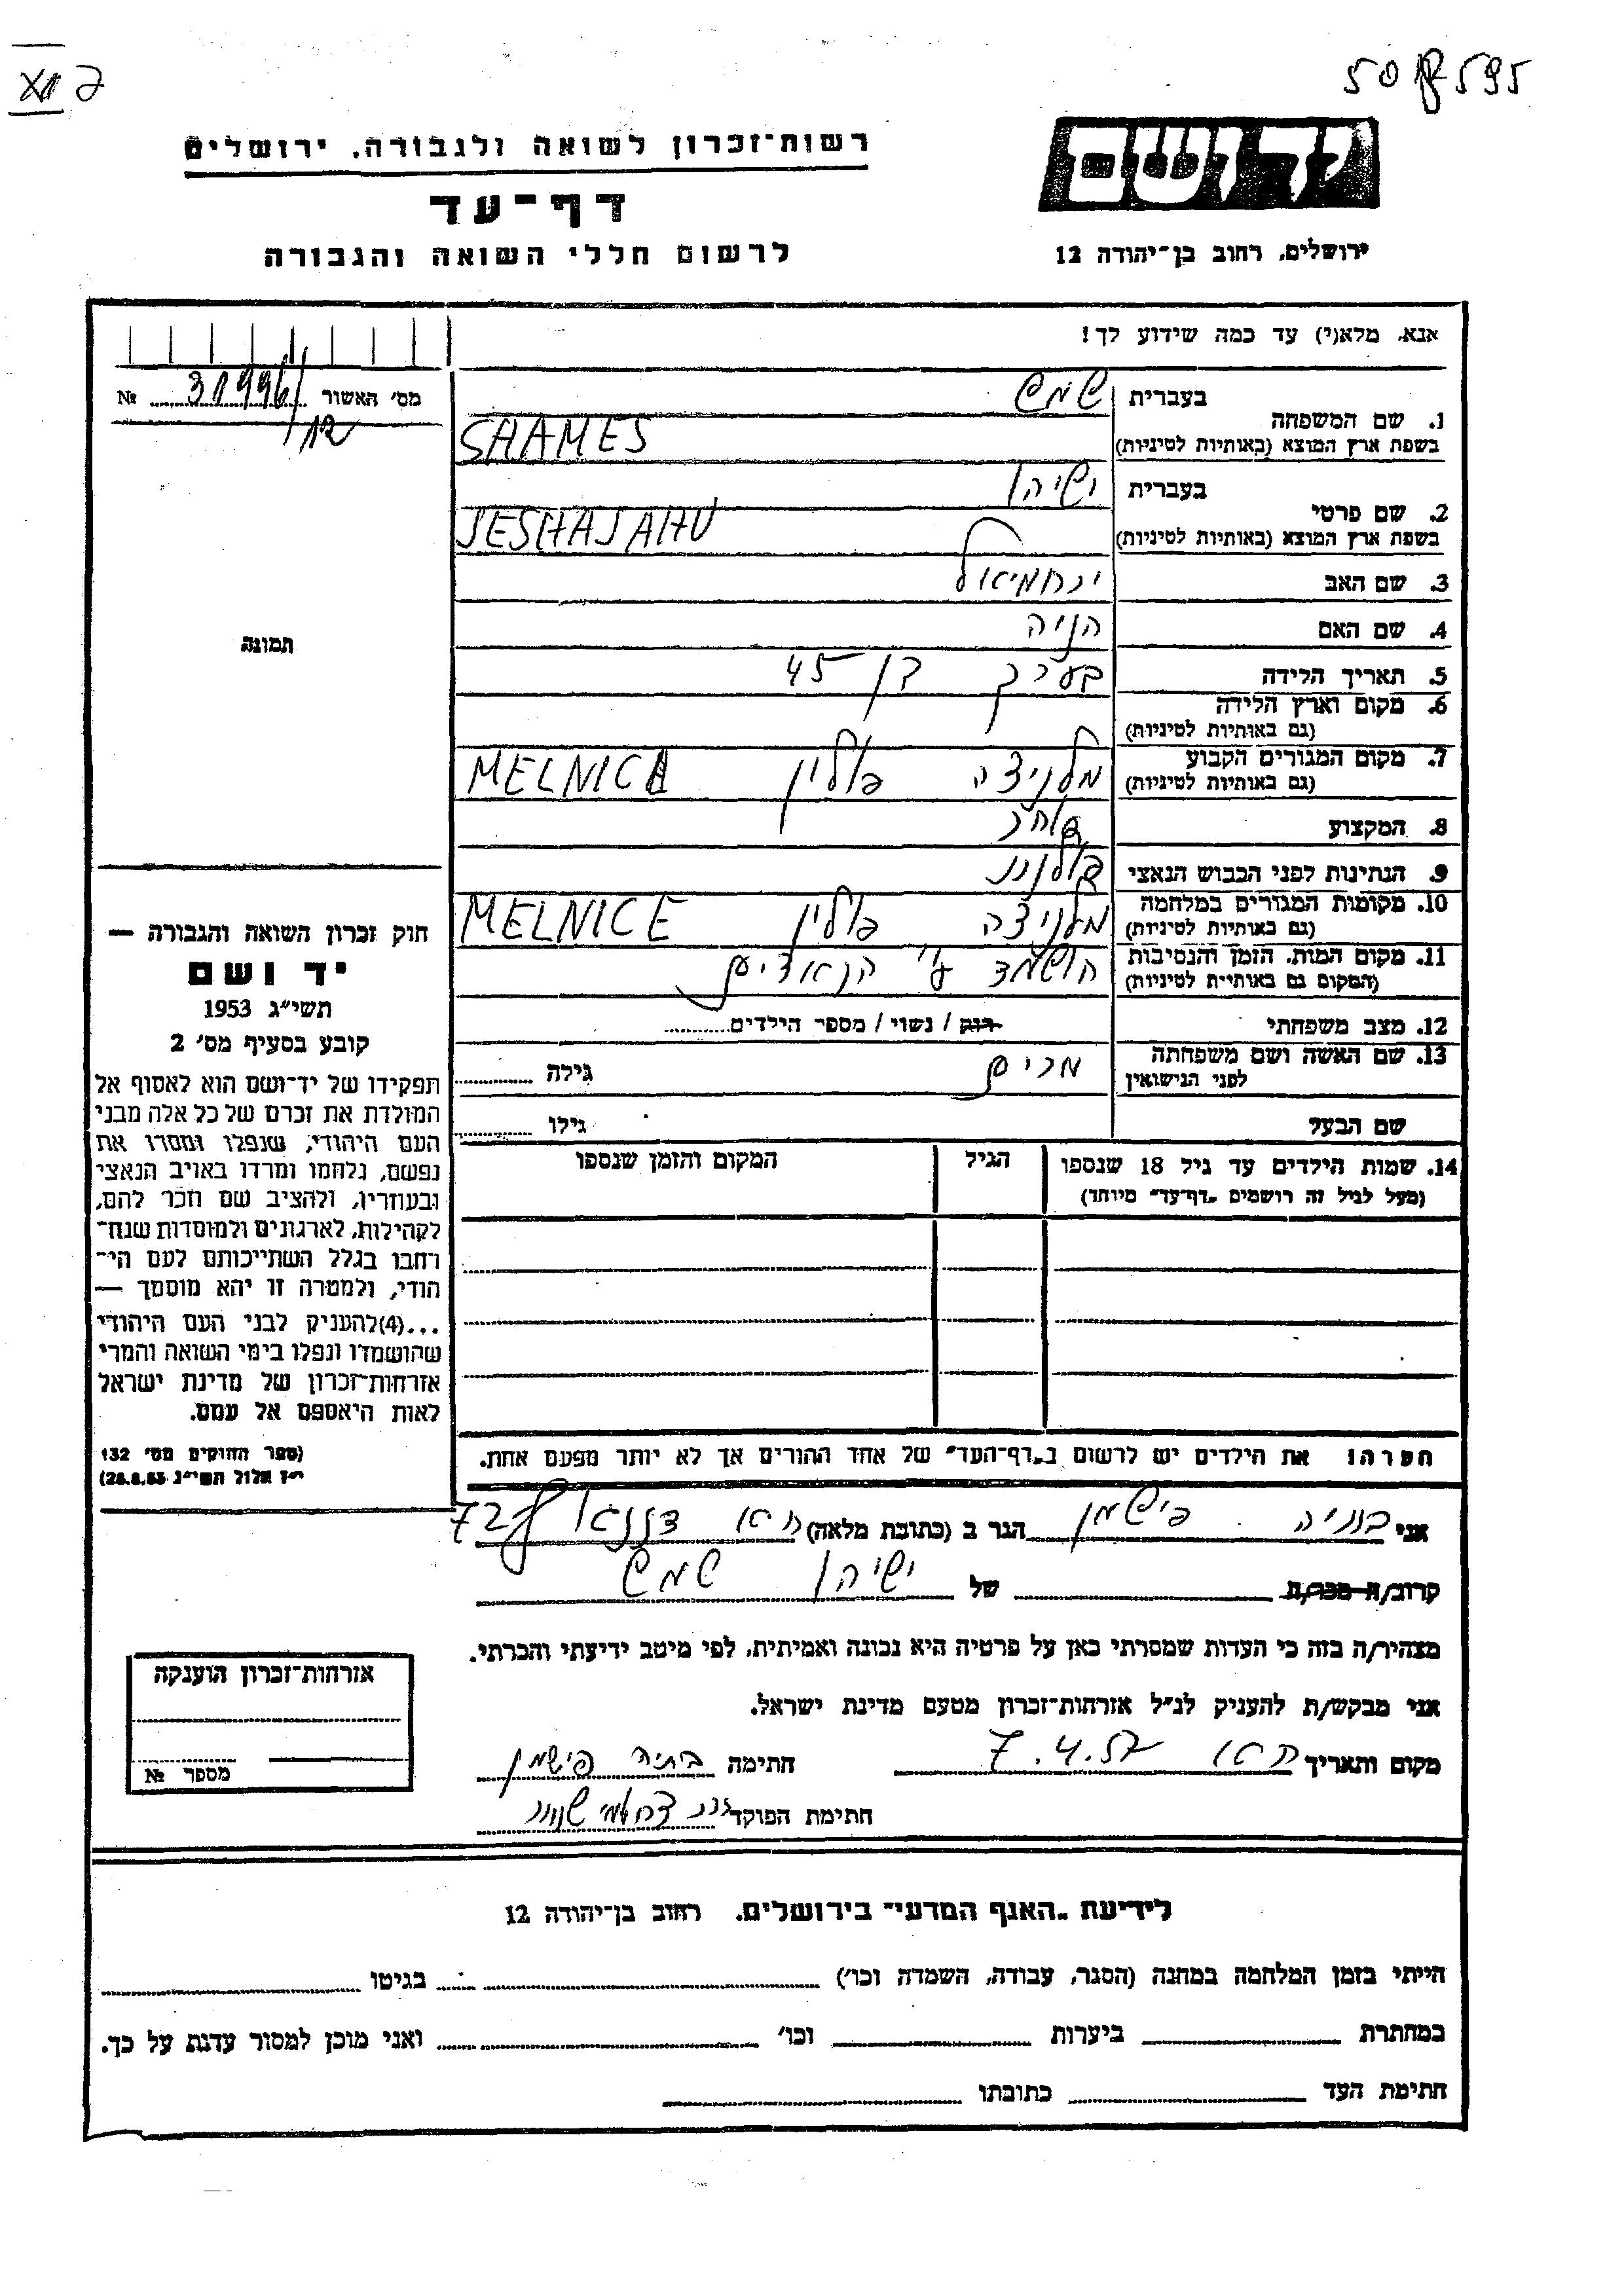 50 595
רשות־זכרון לשואה ולגבורה, ירושלים
יד ושם
דף־עד
לרשום חללי השואה והגבורה
ירושלים, רחוב בן־יהודה 12
אנא, מלא(י) עד כמה שידוע לך!
מס' האשור 31996/12 №
1. שם המשפחה
בעברית שמש
בשפת ארץ המוצא (באותיות לטיניות) SHAMES
2. שם פרטי
בעברית ישיהו
בשפת ארץ המוצא (באותיות לטיניות) JESHAJAHU
3. שם האב ירחמיאל
4. שם האם הניה
5. תאריך הלידה בערך בן 45
6. מקום וארץ הלידה
(גם באותיות לטיניות)
7. מקום המגורים הקבוע מלניצה פולין MELNICA
(גם באותיות לטיניות)
8. המקצוע סוחר
9. הנתינות לפני הכבוש הנאצי
10. מקומות המגורים במלחמה מלניצה פולין MELNICE
(גם באותיות לטיניות)
11. מקום המות, הזמן והנסיבות הושמד ע"י הנאצים
(המקום גם באותיות לטיניות)
12. מצב משפחתי רווק / נשוי / מספר הילדים
13. שם האשה ושם משפחתה מרים גילה
לפני הנישואין
שם הבעל גילו
14. שמות הילדים עד גיל 18 שנספו הגיל המקום והזמן שנספו
(מעל לגיל זה רושמים „דף־עד" מיוחד)
תמונה
חוק זכרון השואה והגבורה —
יד ושם
תשי"ג 1953
קובע בסעיף מס' 2
תפקידו של יד־ושם הוא לאסוף אל
המולדת את זכרם של כל אלה מבני
העם היהודי, שנפלו ומסרו את
נפשם, נלחמו ומרדו באויב הנאצי
ובעוזריו, ולהציב שם וזכר להם,
לקהילות, לארגונים ולמוסדות שנח־
רבו בגלל השתייכותם לעם הי־
הודי, ולמטרה זו יהא מוסמך —
...(4)להעניק לבני העם היהודי
שהושמדו ונפלו בימי השואה והמרי
אזרחות־זכרון של מדינת ישראל
לאות היאספם אל עמם.
(ספר החוקים מס' 132
י"ז אלול תשי"ג 28.8.53)
הערה! את הילדים יש לרשום ב„דף־העד" של אחד ההורים אך לא יותר מפעם אחת.
אני בתיה פישמן הגר ב (כתובת מלאה) 72
קרוב/ה מכר/ת של ישיהו שמש
מצהיר/ה בזה כי העדות שמסרתי כאן על פרטיה היא נכונה ואמיתית, לפי מיטב ידיעתי והכרתי.
אני מבקש/ת להעניק לנ"ל אזרחות־זכרון מטעם מדינת ישראל.
מקום ותאריך 7.4.57 חתימה בתיה פישמן
חתימת הפוקד
אזרחות־זכרון הוענקה
מספר №
לידיעת „האגף המדעי" בירושלים, רחוב בן־יהודה 12
הייתי בזמן המלחמה במחנה (הסגר, עבודה, השמדה וכו') בגיטו
במחתרת ביערות וכו' ואני מוכן למסור עדות על כך.
חתימת העד כתובתו